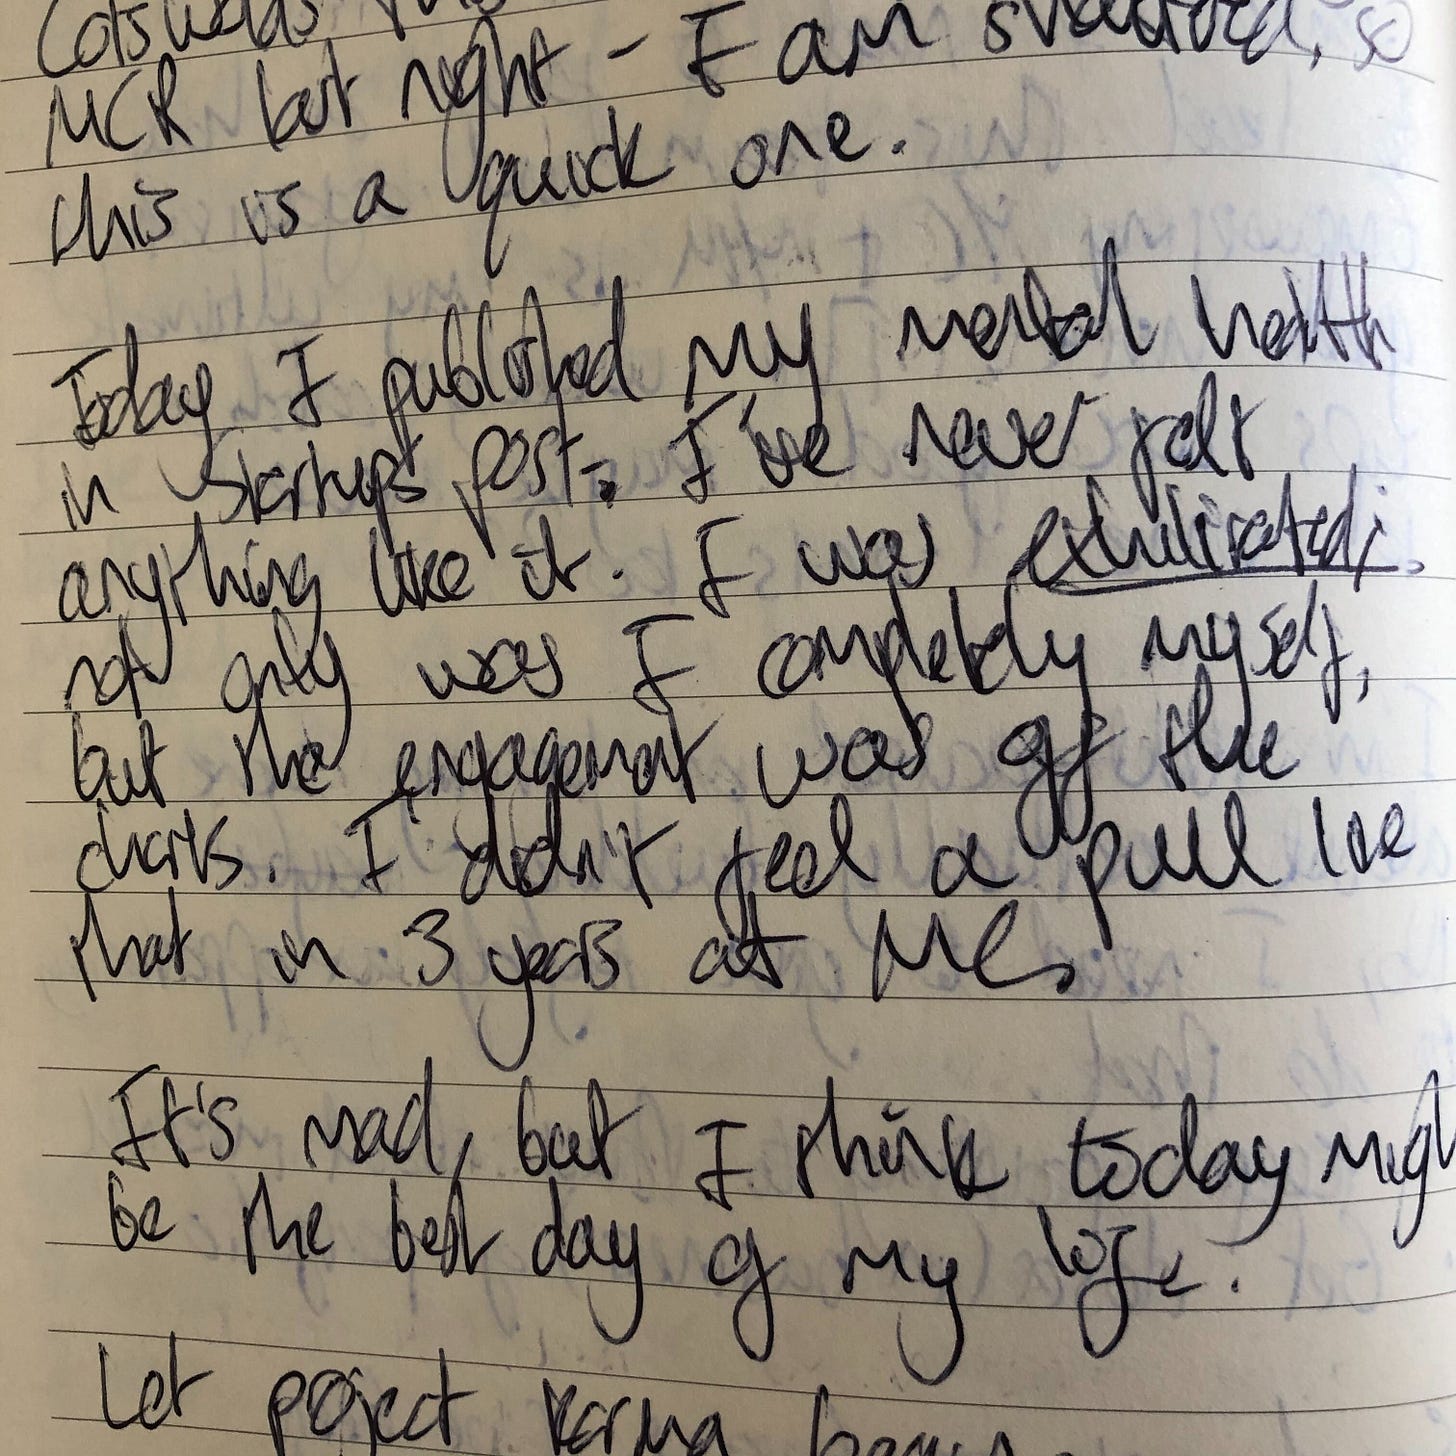 Cotswolds
MCR last night - I am shattered, so
this is a quick one.
Today I published my mental health
in startups post. I've never felt
anything like it. I was exhilirated;
not only was I completely myself,
but the engagement was off the
charts. I didn't feel a pull like
that in 3 years at ML.
It's mad, but I think today migh
be the best day of my life.
Let project karma